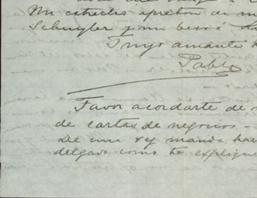 Mi estrecho apreton de m
Schuyler y un beso
Tuyo amante
Pablo
Favor acordarte de
de cartas de negocios -
De una vez manda hac
delgado como te expliqu